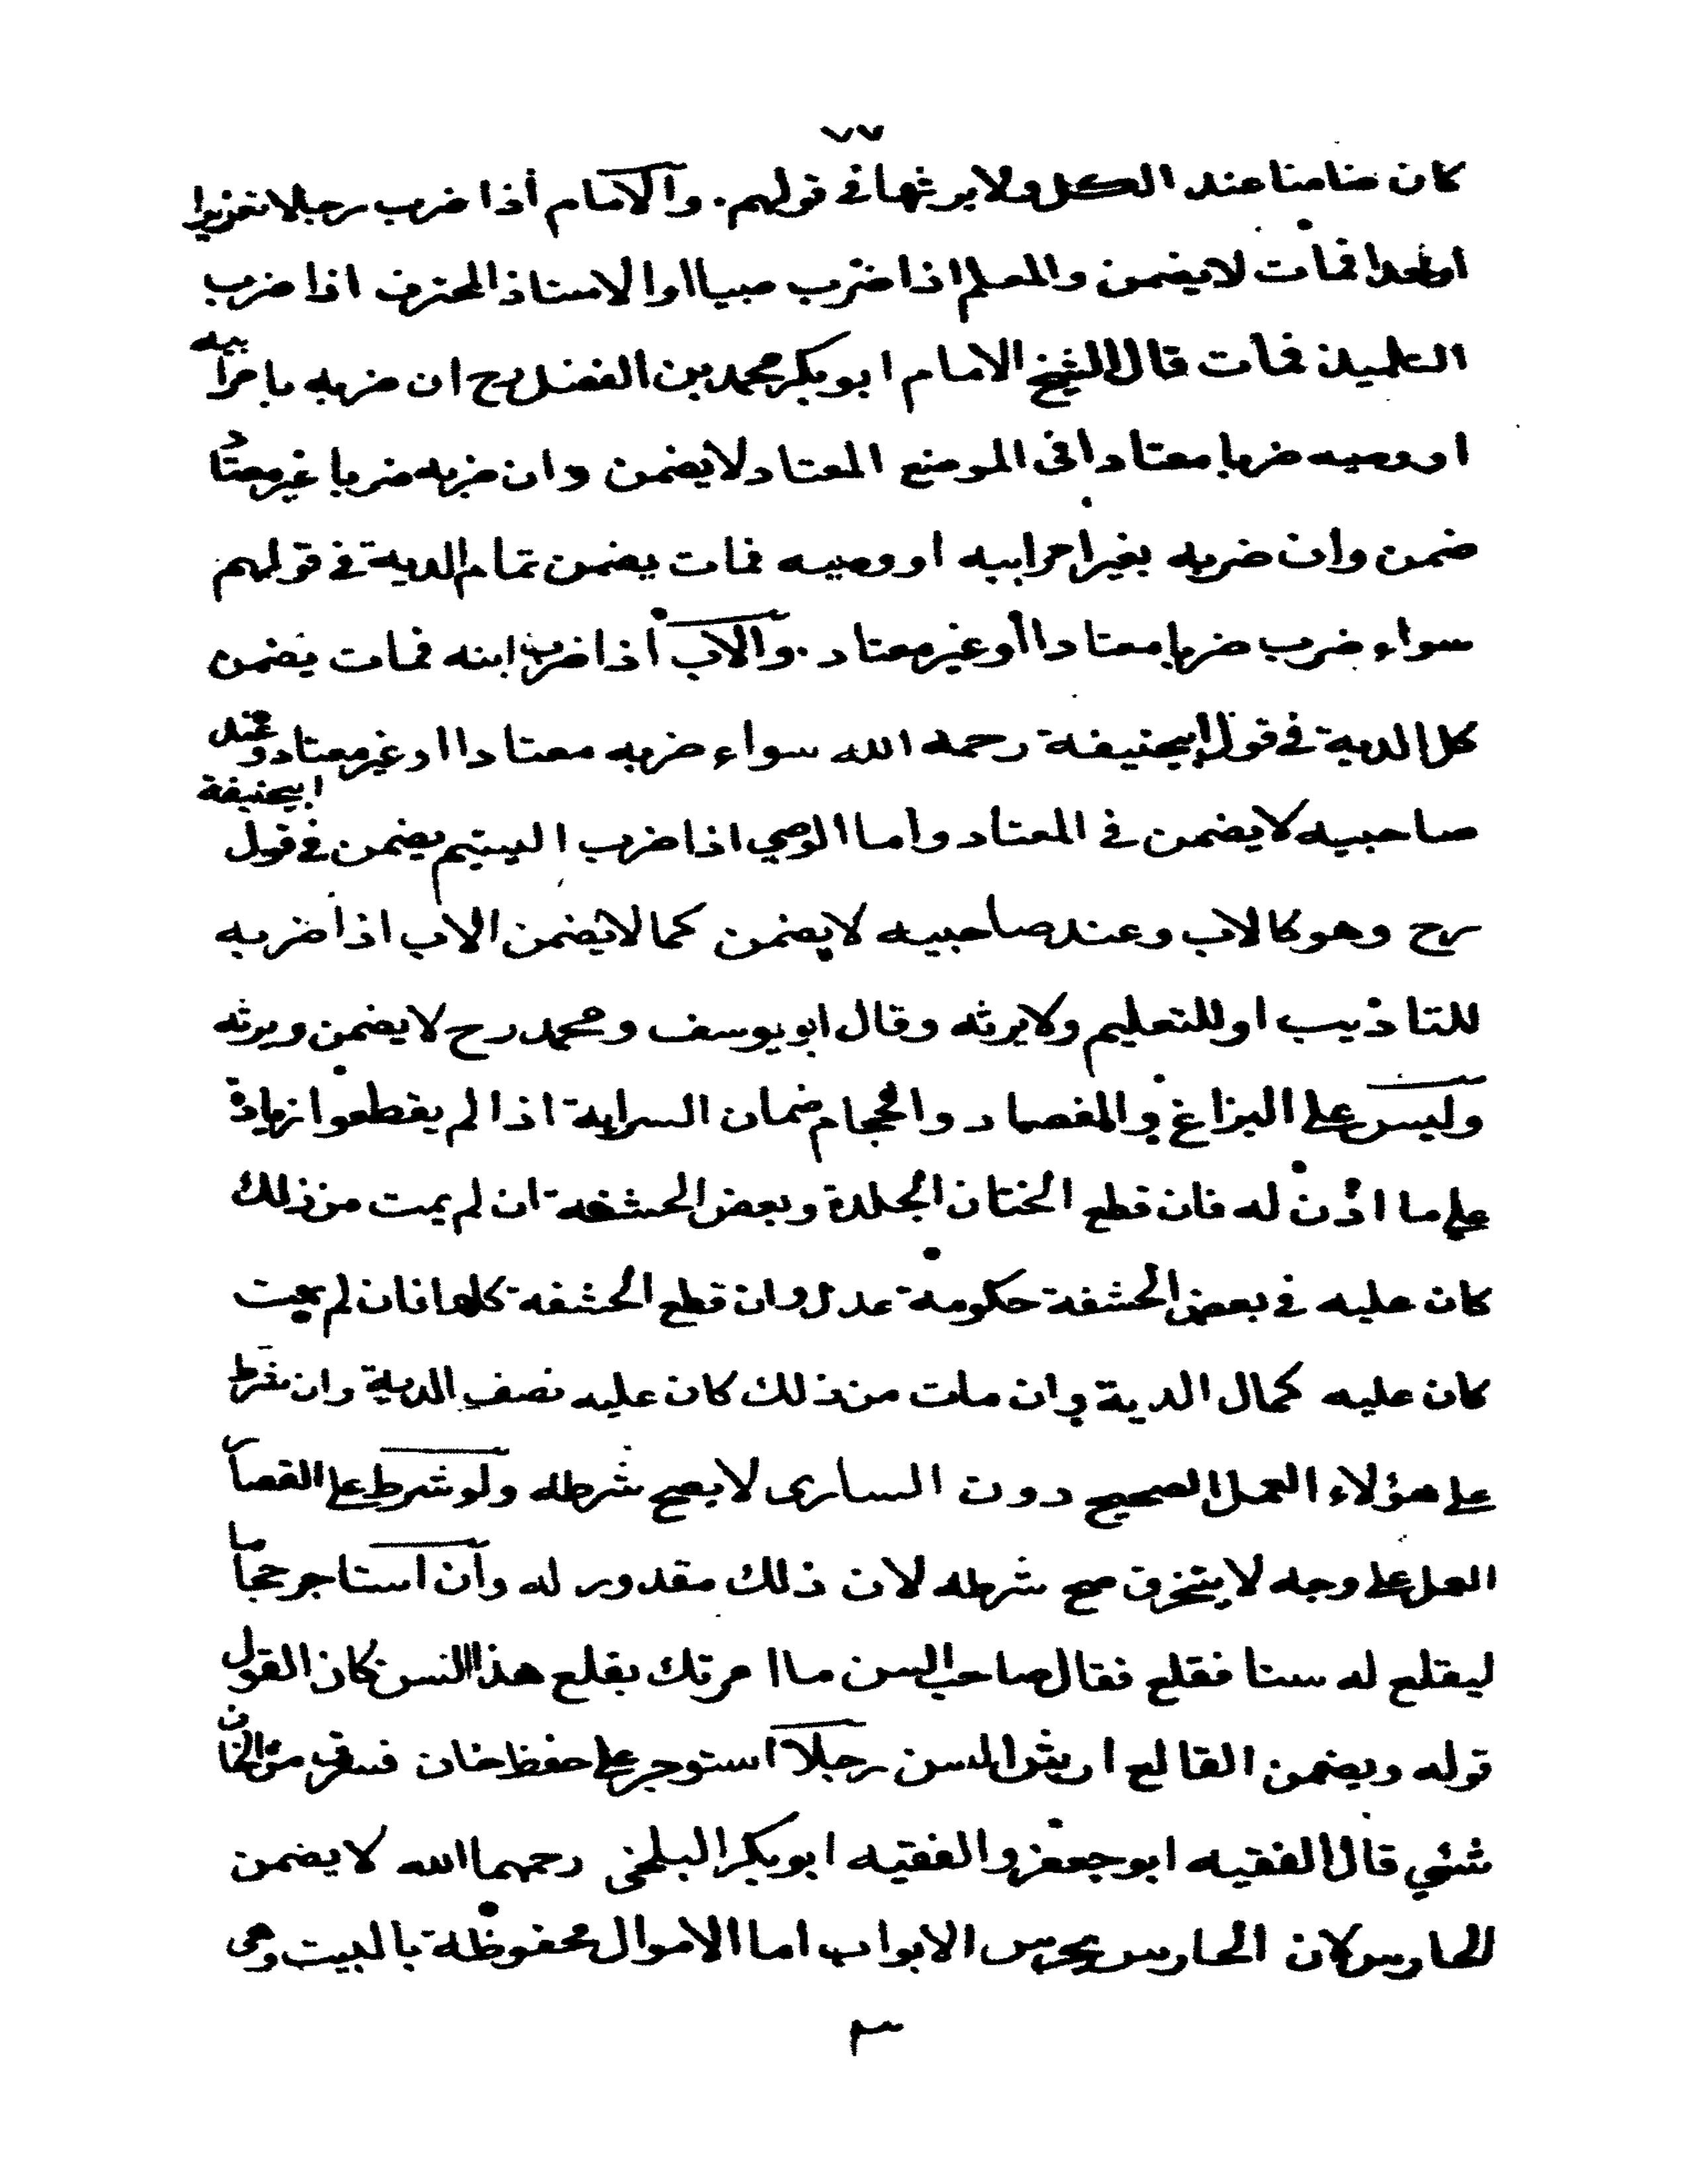 ٧٧
كان ضامنا عند الكل ولا يرثها فى قولهم . والامام أذا ضرب رجلا تعزيرا
اوحدا فمات لا يضمن والمعلم اذا ضرب صبيا اوالاستاذ المحترف اذا ضرب
التلميذ فمات قال الشيخ الامام ابو بكر محمد بن الفضل رح ان ضربه بامرابيه
او وصيه ضربا معتادا فى الموضع المعتاد لا يضمن وان ضربه ضربا غير معتاد
ضمن وان ضربه بغير امر ابيه او وصيه فمات يضمن تمام الدية فى قولهم
سواء ضرب ضربا معتادا أو غير معتاد . والاب أذا ضرب ابنه فمات يضمن
كل الدية فى قول ابيحنيفة رحمه الله سواء ضربه معتادا او غير معتاد وعند
صاحبيه لا يضمن فى المعتاد واما الوصي اذا ضرب اليتيم يضمن فى قول ابيحنيفة
رح وهو كالاب وعند صاحبيه لا يضمن كما لا يضمن الاب اذا ضربه
للتاذيب او للتعليم ولا يرثه وقال ابو يوسف ومحمد رح لا يضمن ويرثه
وليس على البزاغ والفصاد والحجام ضمان السراية اذا لم يقطعوا زيادة
على ما اذن له فان قطع الختان الجلدة وبعض الحشفة ان لم يمت من ذلك
كان عليه فى بعض الحشفة حكومة عدل وان قطع الحشفة كلها فان لم يمت
كان عليه كمال الدية وان مات من ذلك كان عليه نصف الدية وان شرط
على هؤلاء العمل الصحيح دون السارى لا يصح شرطه ولو شرط على القصار
العمل على وجه لا يتخرق صح شرطه لان ذلك مقدور له وأن استاجر حجاما
ليقلع له سنا فقلع فقال صاحب السن ما امرتك بقلع هذا السن كان القول
قوله ويضمن القالع ارش السن رجلا استوجر على حفظ خان فسرق من الخان
شئي قال الفقيه ابو جعفر والفقيه ابو بكر البلخى رحمهما الله لا يضمن
الحارس لان الحارس يحرس الابواب اما الاموال محفوظة بالبيت وهى